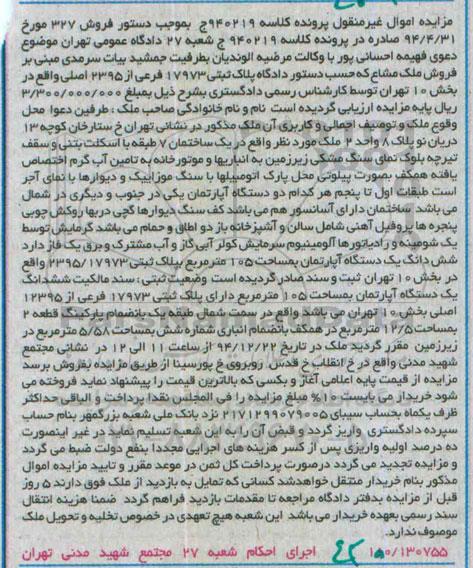 مزایده اموال غیرمنقول پرونده کلاسه ۹۴۰۲۱۹ج بموجب دستور فروش ۳۲۷ مورخ
۹۴/۴/۳۱ صادره در پرونده کلاسه ۹۴۰۲۱۹ ج شعبه ۲۷ دادگاه عمومی تهران موضوع
دعوی فهیمه احسانی پور با وکالت مرضیه الوندیان بطرفیت جمشید بیات سرمدی مبنی بر
فروش ملک مشاع که حسب دستور دادگاه پلاک ثبتی ۱۷۹۷۳ فرعی از ۲۳۹۵ اصلی واقع در
بخش ۱۰ تهران توسط کارشناس رسمی دادگستری بشرح ذیل بمبلغ ۳/۳۰۰/۰۰۰/۰۰۰
ریال پایه مزایده ارزیابی گردیده است نام و نام خانوادگی صاحب ملک : طرفین دعوا محل
وقوع ملک و توصیف اجمالی و کاربری آن ملک مذکور در نشانی تهران خ ستارخان کوچه ۱۳
دریان نو پلاک ۸ واحد ۲ ملک مورد نظر واقع در یک ساختمان ۷ طبقه با اسکلت بتنی و سقف
تیرچه بلوک نمای سنگ مشکی زیرزمین به انباریها و موتورخانه به تامین آب گرم اختصاص
یافته همکف بصورت پیلوتی محل پارک اتومبیلها با سنگ موزاییک و دیوارها با نمای آجر
است طبقات اول تا پنجم هر کدام دو دستگاه آپارتمان یکی در جنوب و دیگری در شمال
می باشد ساختمان دارای آسانسور هم می باشد کف سنگ دیوارها گچی دربها روکش چوبی
پنجره ها پروفیل آهنی شامل سالن و آشپزخانه باز دو اطاق و حمام می باشد گرمایش توسط
یک شومینه و رادیاتورها آلومینیوم سرمایش کولر آبی گاز و آب مشترک و برق یک فاز دارد
شش دانگ یک دستگاه آپارتمان بمساحت ۱۰۵ مترمربع بپلاک ثبتی ۲۳۹۵/۱۷۹۷۳ واقع
در بخش ۱۰ تهران ثبت و سند صادر گردیده است وضعیت ثبتی : سند مالکیت ششدانگ
یک دستگاه آپارتمان بمساحت ۱۰۵ مترمربع دارای پلاک ثبتی ۱۷۹۷۳ فرعی از ۱۲۳۹۵
اصلی بخش ۱۰ تهران می باشد واقع در سمت شمال طبقه یک بانضمام پارکینگ قطعه ۲
بمساحت ۱۲/۵ مترمربع در همکف بانضمام انباری شماره شش بمساحت ۵/۵۸ مترمربع در
زیرزمین مقرر گردید ملک در تاریخ ۹۴/۱۲/۲۲ از ساعت ۱۱ الی ۱۲ در نشانی مجتمع
شهید مدنی واقع در خ انقلاب خ قدس روبروی خ پورسینا از طریق مزایده بفروش برسد
مزایده از قیمت پایه اعلامی آغاز و بکسی که بالاترین قیمت را پیشنهاد نماید فروخته می
شود خریدار می بایست ۱۰% مبلغ مزایده را فی المجلس نقدا پرداخت و الباقی حداکثر
ظرف یکماه بحساب سیبای ۲۱۷۱۲۹۹۰۷۹۰۰۵ نزد بانک ملی شعبه بزرگمهر بنام حساب
سپرده دادگستری واریز گردد و قبض آن را به این شعبه تسلیم نماید در غیر اینصورت
ده درصد اولیه واریزی پس از کسر هزینه های اجرایی مجددا بنفع دولت ضبط می گردد
و مزایده تجدید می گردد درصورت پرداخت کل ثمن در موعد مقرر و تایید مزایده اموال
مذکور بنام خریدار منتقل خواهدشد کسانی که تمایل به بازدید از ملک فوق دارند ۵ روز
قبل از مزایده بدفتر دادگاه مراجعه تا مقدمات بازدید فراهم گردد ضمنا هزینه انتقال
سند رسمی بعهده خریدار می باشد این شعبه هیچ تعهدی در خصوص تخلیه و تحویل ملک
موصوف ندارد.
۱۵۰/۱۳۰۷۵۵ اجرای احکام شعبه ۲۷ مجتمع شهید مدنی تهران